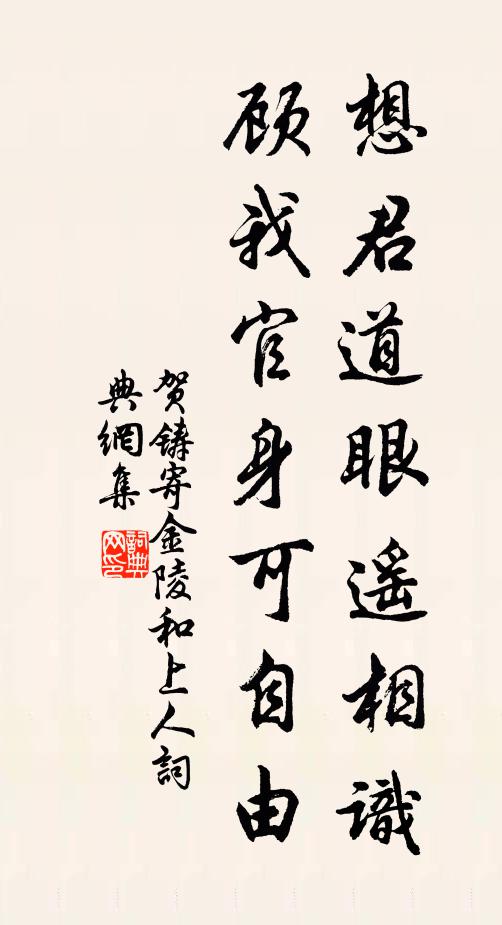 想君道眼遥相識
顾我官身可自由
贺鑄寄金陵和上人詞
典網集
詞典网印